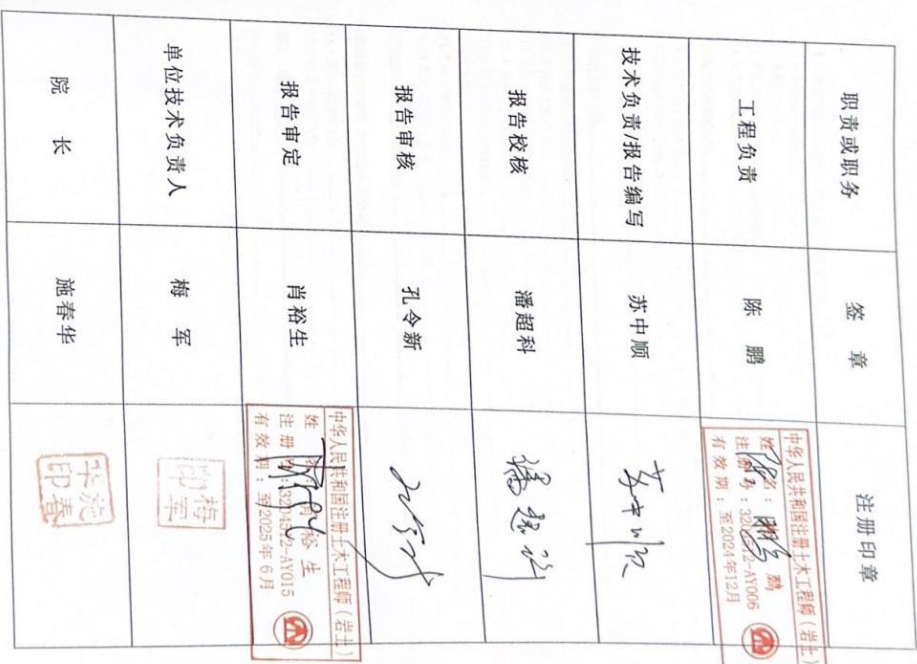 职责或职务 签 章 注册印章
工程负责 陈 鹏
中华人民共和国注册土木工程师(岩土)
姓 名:陈 鹏
有效期:至2024年12月
技术负责/报告编写 苏中顺 苏中顺
报告校核 潘超科 潘超科
报告审核 孔令新 孔令新
报告审定 肖裕生
中华人民共和国注册土木工程师(岩土)
裕 生
有效期:至2025年6月
单位技术负责人 梅 军 梅军印
院 长 施春华 施春华印